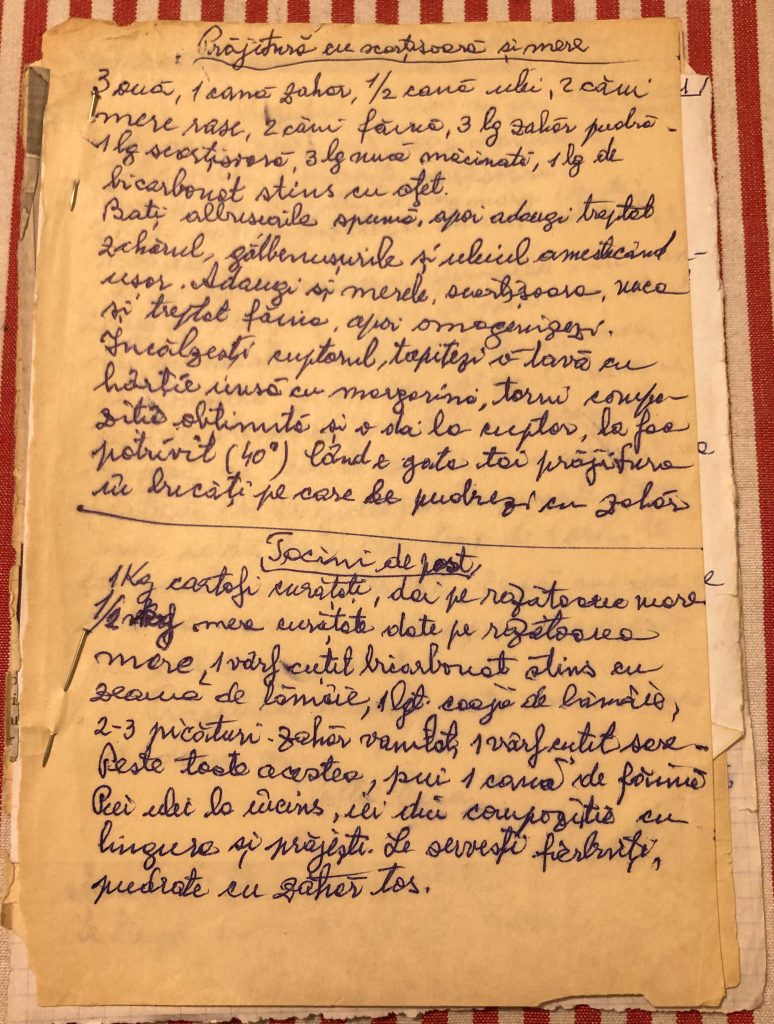 Prăjitură cu scorțișoară și mere
3 ouă, 1 cană zahăr, 1/2 cană ulei, 2 căni
mere rase, 2 căni făină, 3 lg zahăr pudră -
1 lg scorțișoară, 3 lg nucă măcinată, 1 lg de
bicarbonat stins cu oțet.
Bați albușurile spumă, apoi adaugi treptat
zahărul, gălbenușurile și uleiul amestecând
ușor. Adaugi și merele, scorțișoara, nuca
și treptat făina, apoi omogenizezi.
Încălzești cuptorul, tapițezi o tavă cu
hârtie unsă cu margarină, torni compo-
ziția obținută și o dai la cuptor, la foc
potrivit (40°) Când e gata tai prăjitura
în bucăți pe care le pudrezi cu zahăr
Tocini de post
1 Kg cartofi curățați, dai pe răzătoarea mare
1/2 kg mere curățate date pe răzătoarea
mare, 1 vârf cuțit bicarbonat stins cu
zeamă de lămâie, 1 lgt. coajă de lămâie,
2-3 picături - zahăr vanilat, 1 vârf cuțit sare -
Peste toate acestea, pui 1 cană de făină
Pui ulei la încins, iei din compoziție cu
lingura și prăjești. Se servesc fierbinți,
pudrate cu zahăr tos.